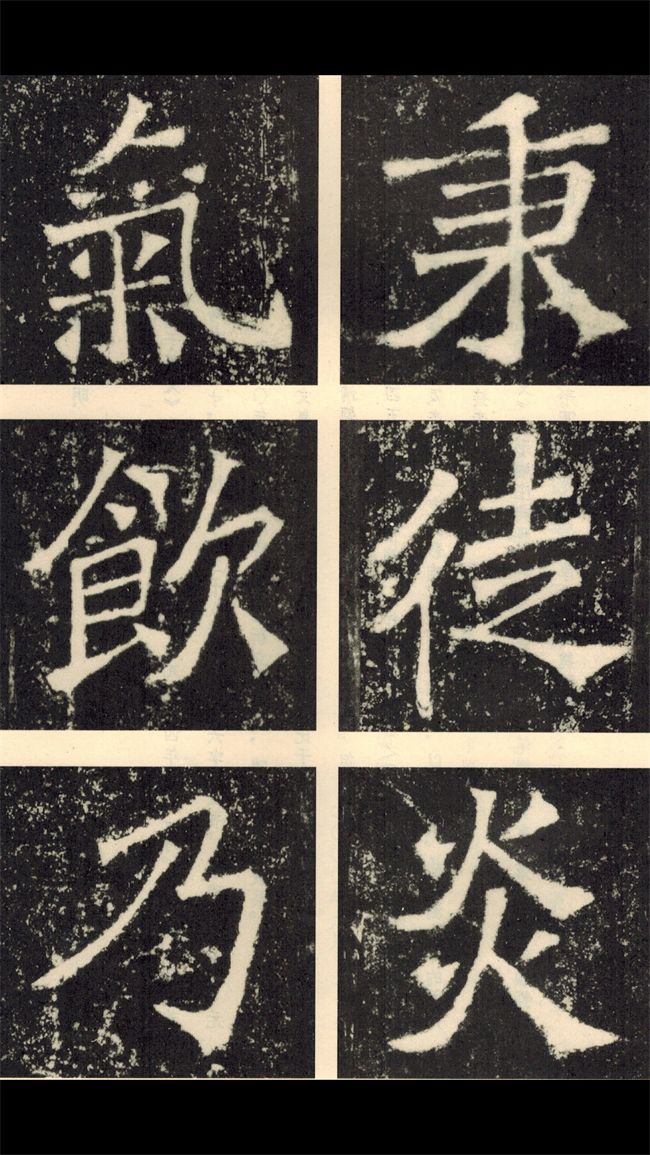 秉徒炎
氣飲乃